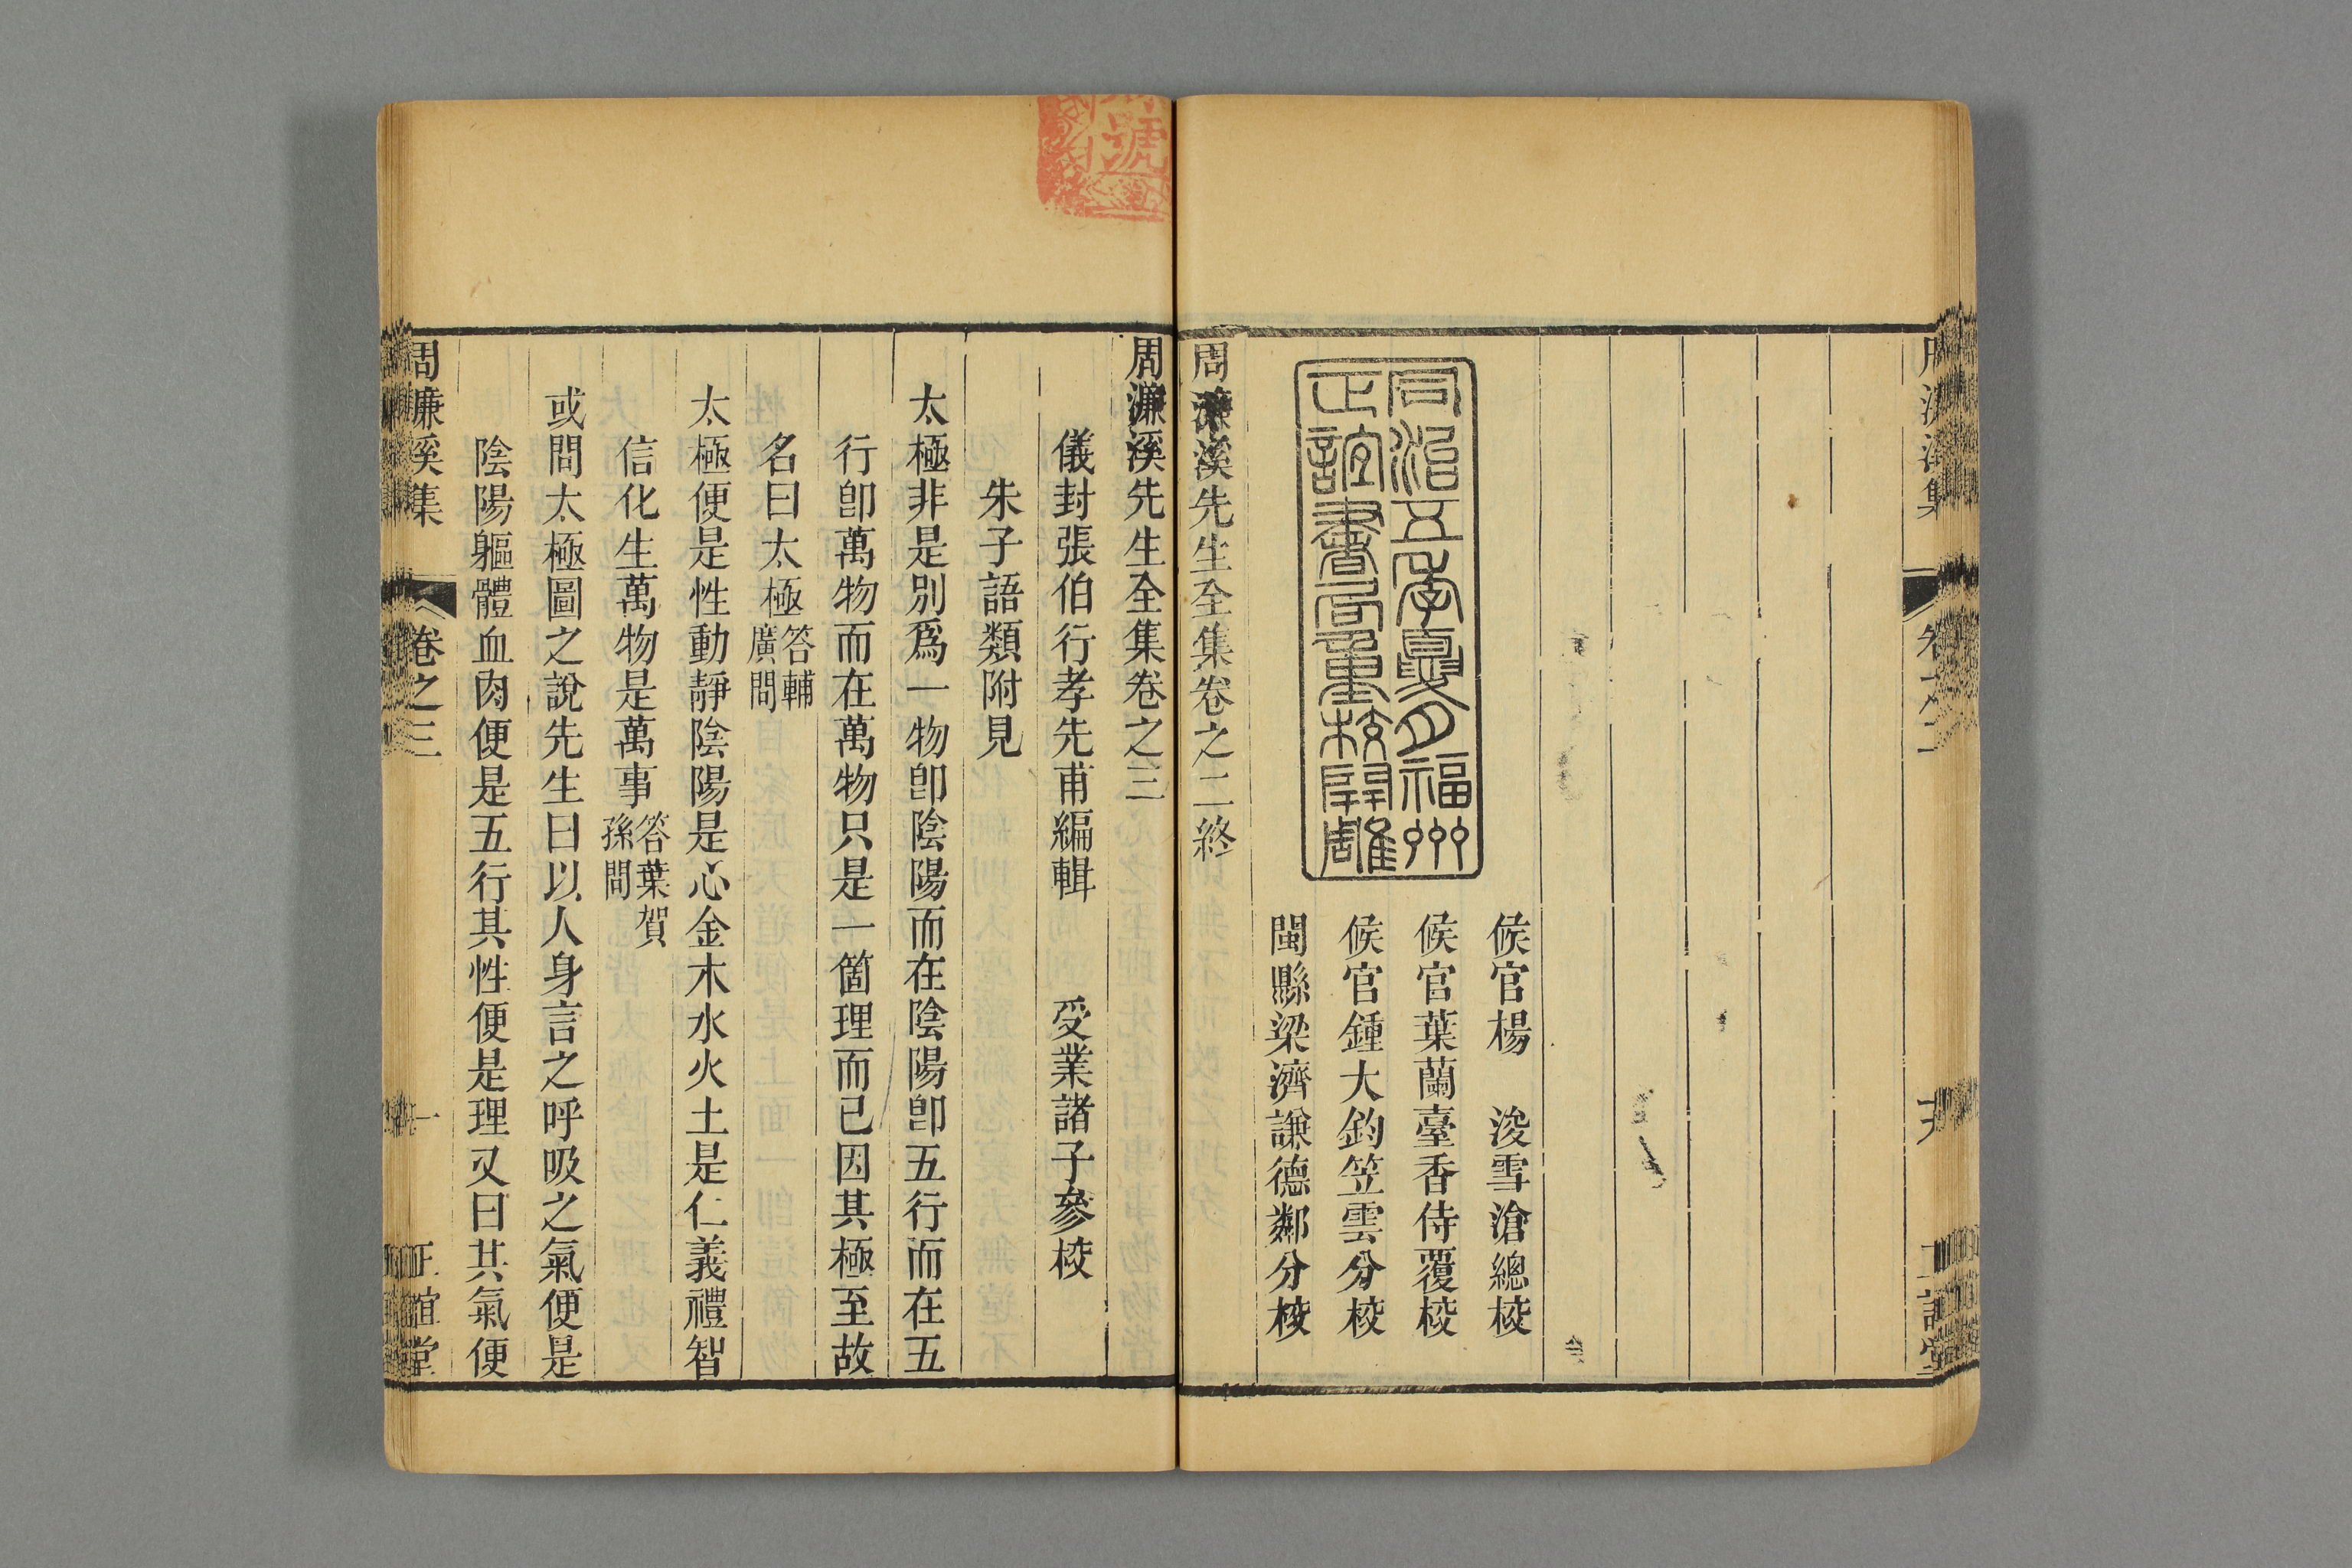 同治五年夏月福州
正誼書局重校開雕
候官楊　浚雪滄總校
候官葉蘭臺香侍覆校
候官鍾大鈞笠雲分校
閩縣梁濟謙德鄰分校
周濂溪先生全集卷之二終
周濂溪先生全集卷之三
儀封張伯行孝先甫編輯　受業諸子參校
朱子語類附見
太極非是別爲一物卽陰陽而在陰陽卽五行而在五
行卽萬物而在萬物只是一箇理而已因其極至故
名曰太極答輔廣問
太極便是性動靜陰陽是心金木水火土是仁義禮智
信化生萬物是萬事答葉賀孫問
或問太極圖之說先生曰以人身言之呼吸之氣便是
陰陽軀體血肉便是五行其性便是理又曰其氣便
周濂溪集　卷之三　一　正誼堂